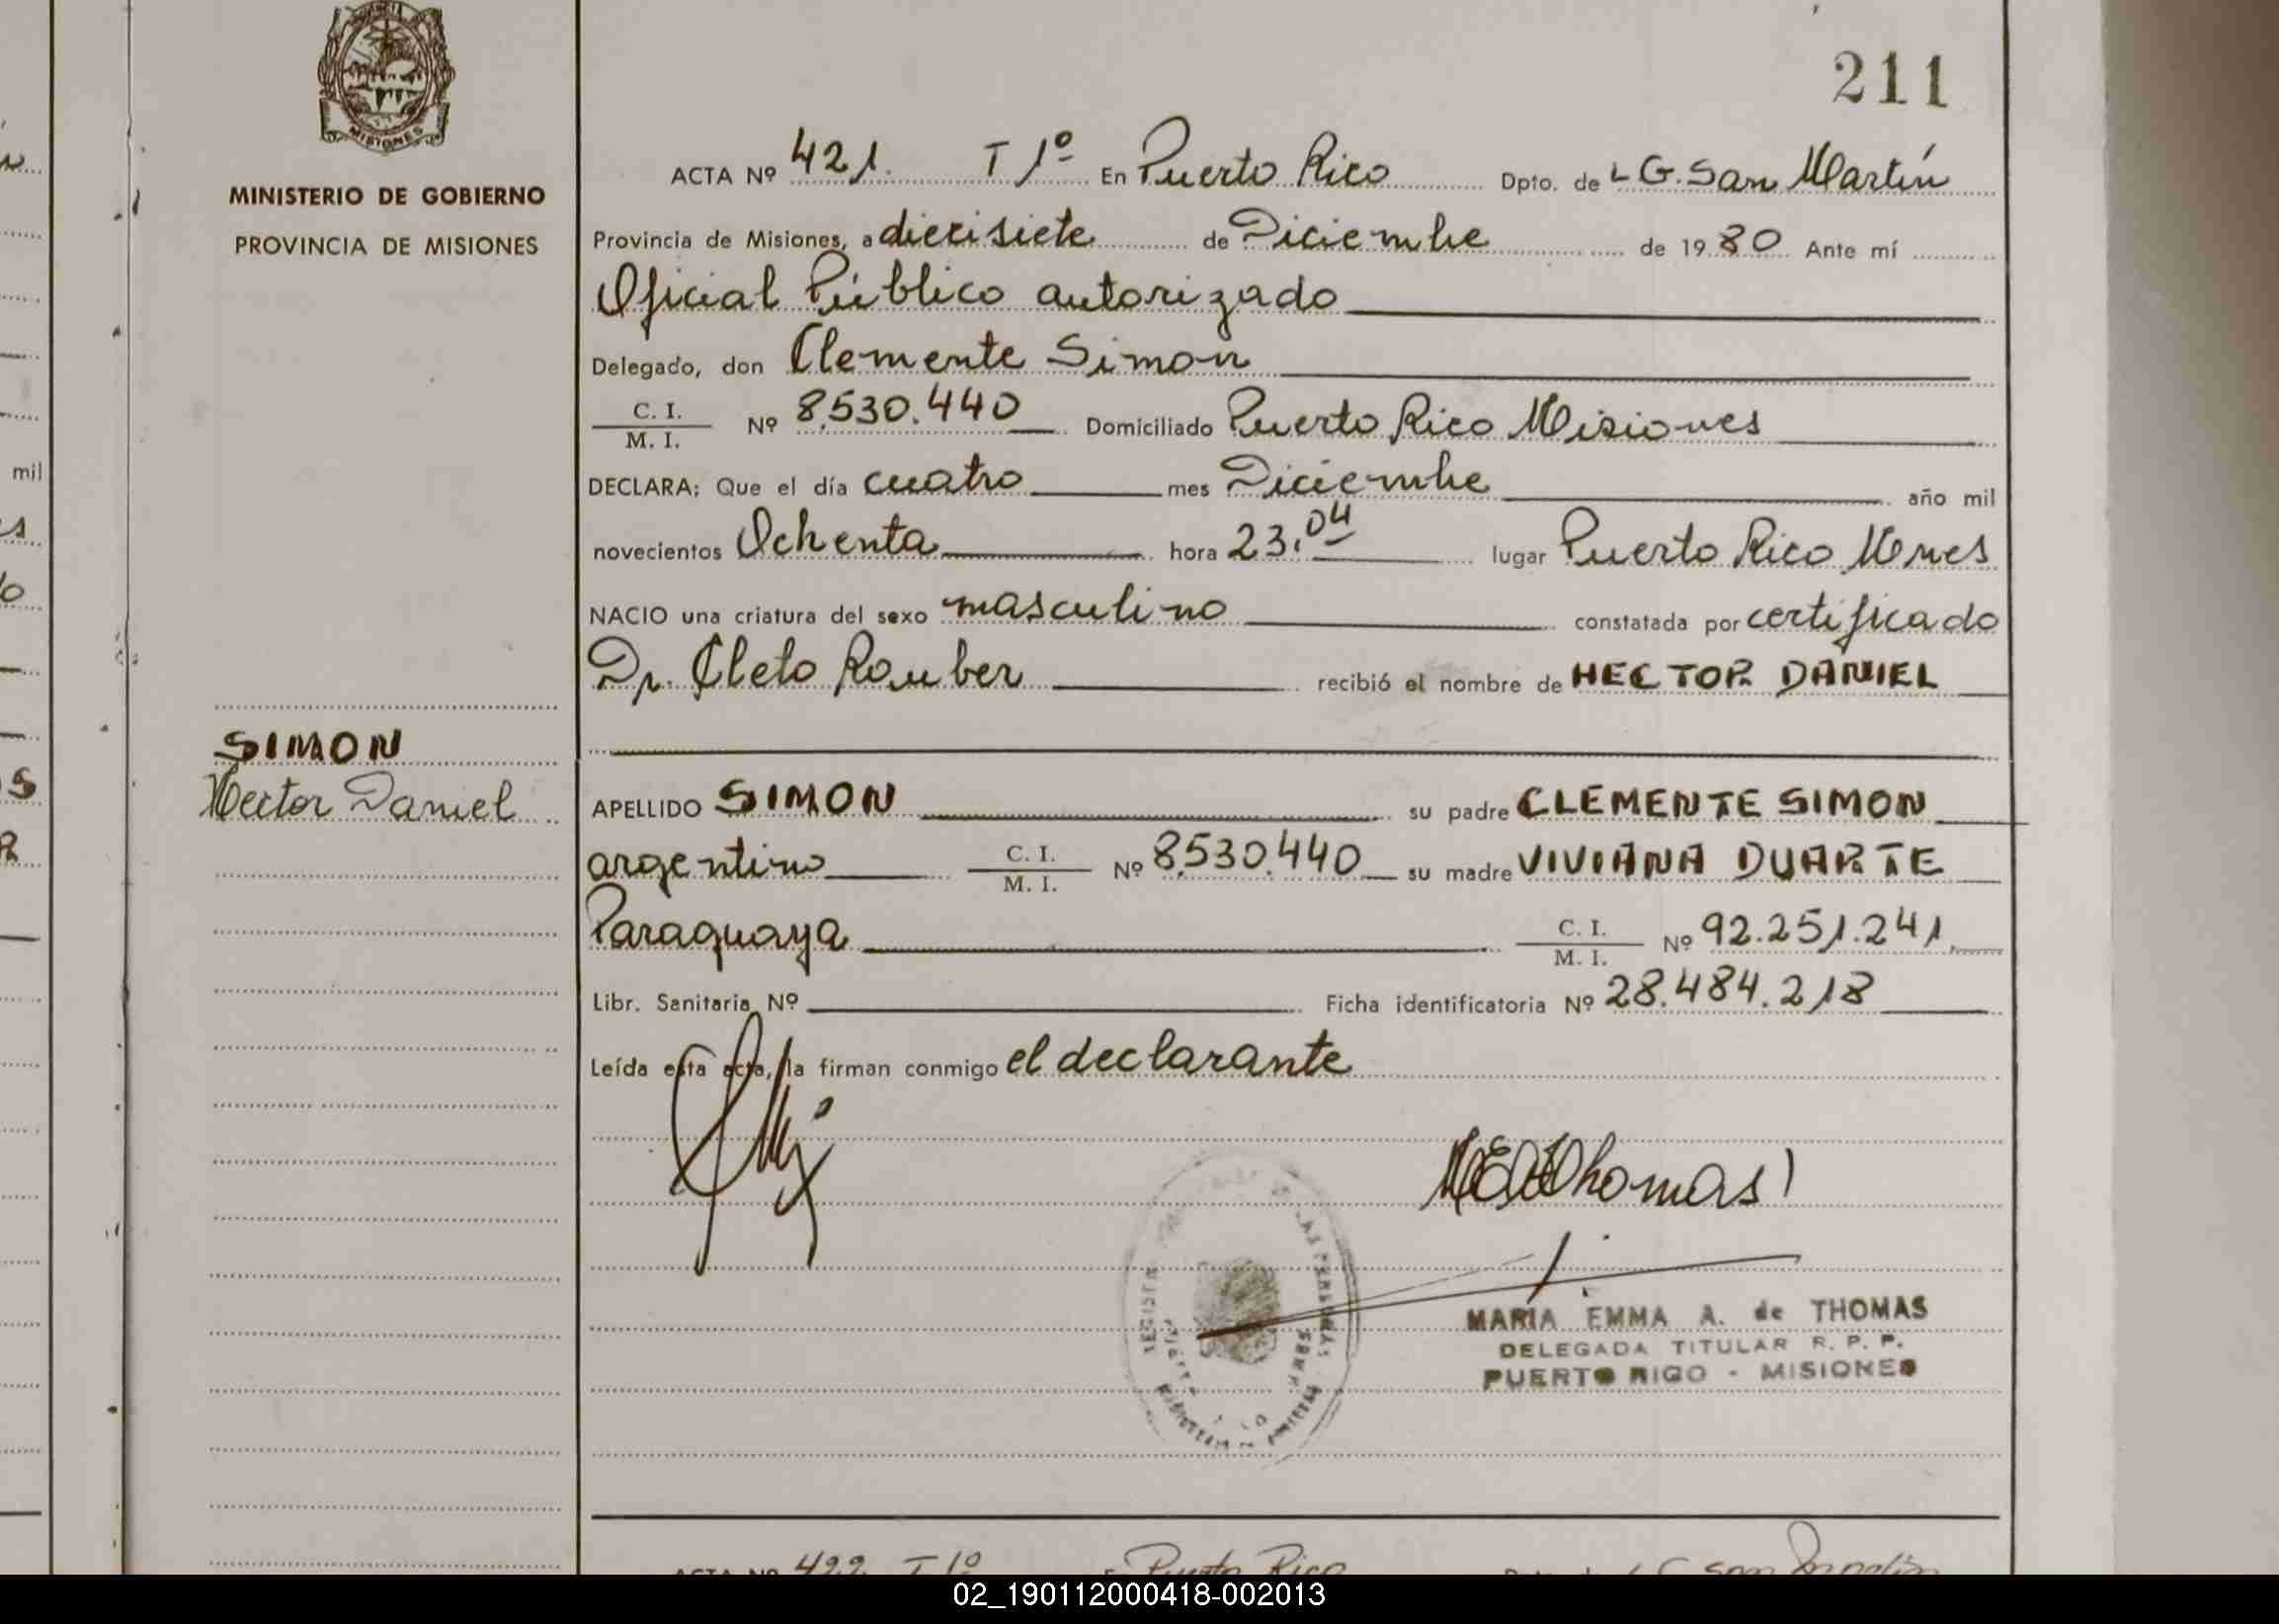 211
MISIONES
MINISTERIO DE GOBIERNO
PROVINCIA DE MISIONES
SIMON
Hector Daniel
ACTA Nº 421. T 1º En Puerto Rico Dpto. de L G. San Martín
Provincia de Misiones, a diecisiete de Diciembre de 1980 Ante mí
Oficial Público autorizado
Delegado, don Clemente Simon
C. I. / M. I. Nº 8.530.440 Domiciliado Puerto Rico Misiones
DECLARA: Que el día cuatro mes Diciembre año mil
novecientos Ochenta hora 23,04 lugar Puerto Rico Mnes
NACIO una criatura del sexo masculino constatada por certificado
Dr. Cleto Rauber recibió el nombre de HECTOR DANIEL
APELLIDO SIMON su padre CLEMENTE SIMON
argentino C. I. / M. I. Nº 8.530.440 su madre VIVIANA DUARTE
Paraguaya C. I. / M. I. Nº 92.251.241
Libr. Sanitaria Nº Ficha identificatoria Nº 28.484.218
Leída esta acta, la firman conmigo el declarante
Thomas
MARIA EMMA A. de THOMAS
DELEGADA TITULAR R. P. P.
PUERTO RICO - MISIONES
ACTA Nº 422 T 1º Puerto Rico
mil
02_190112000418-002013